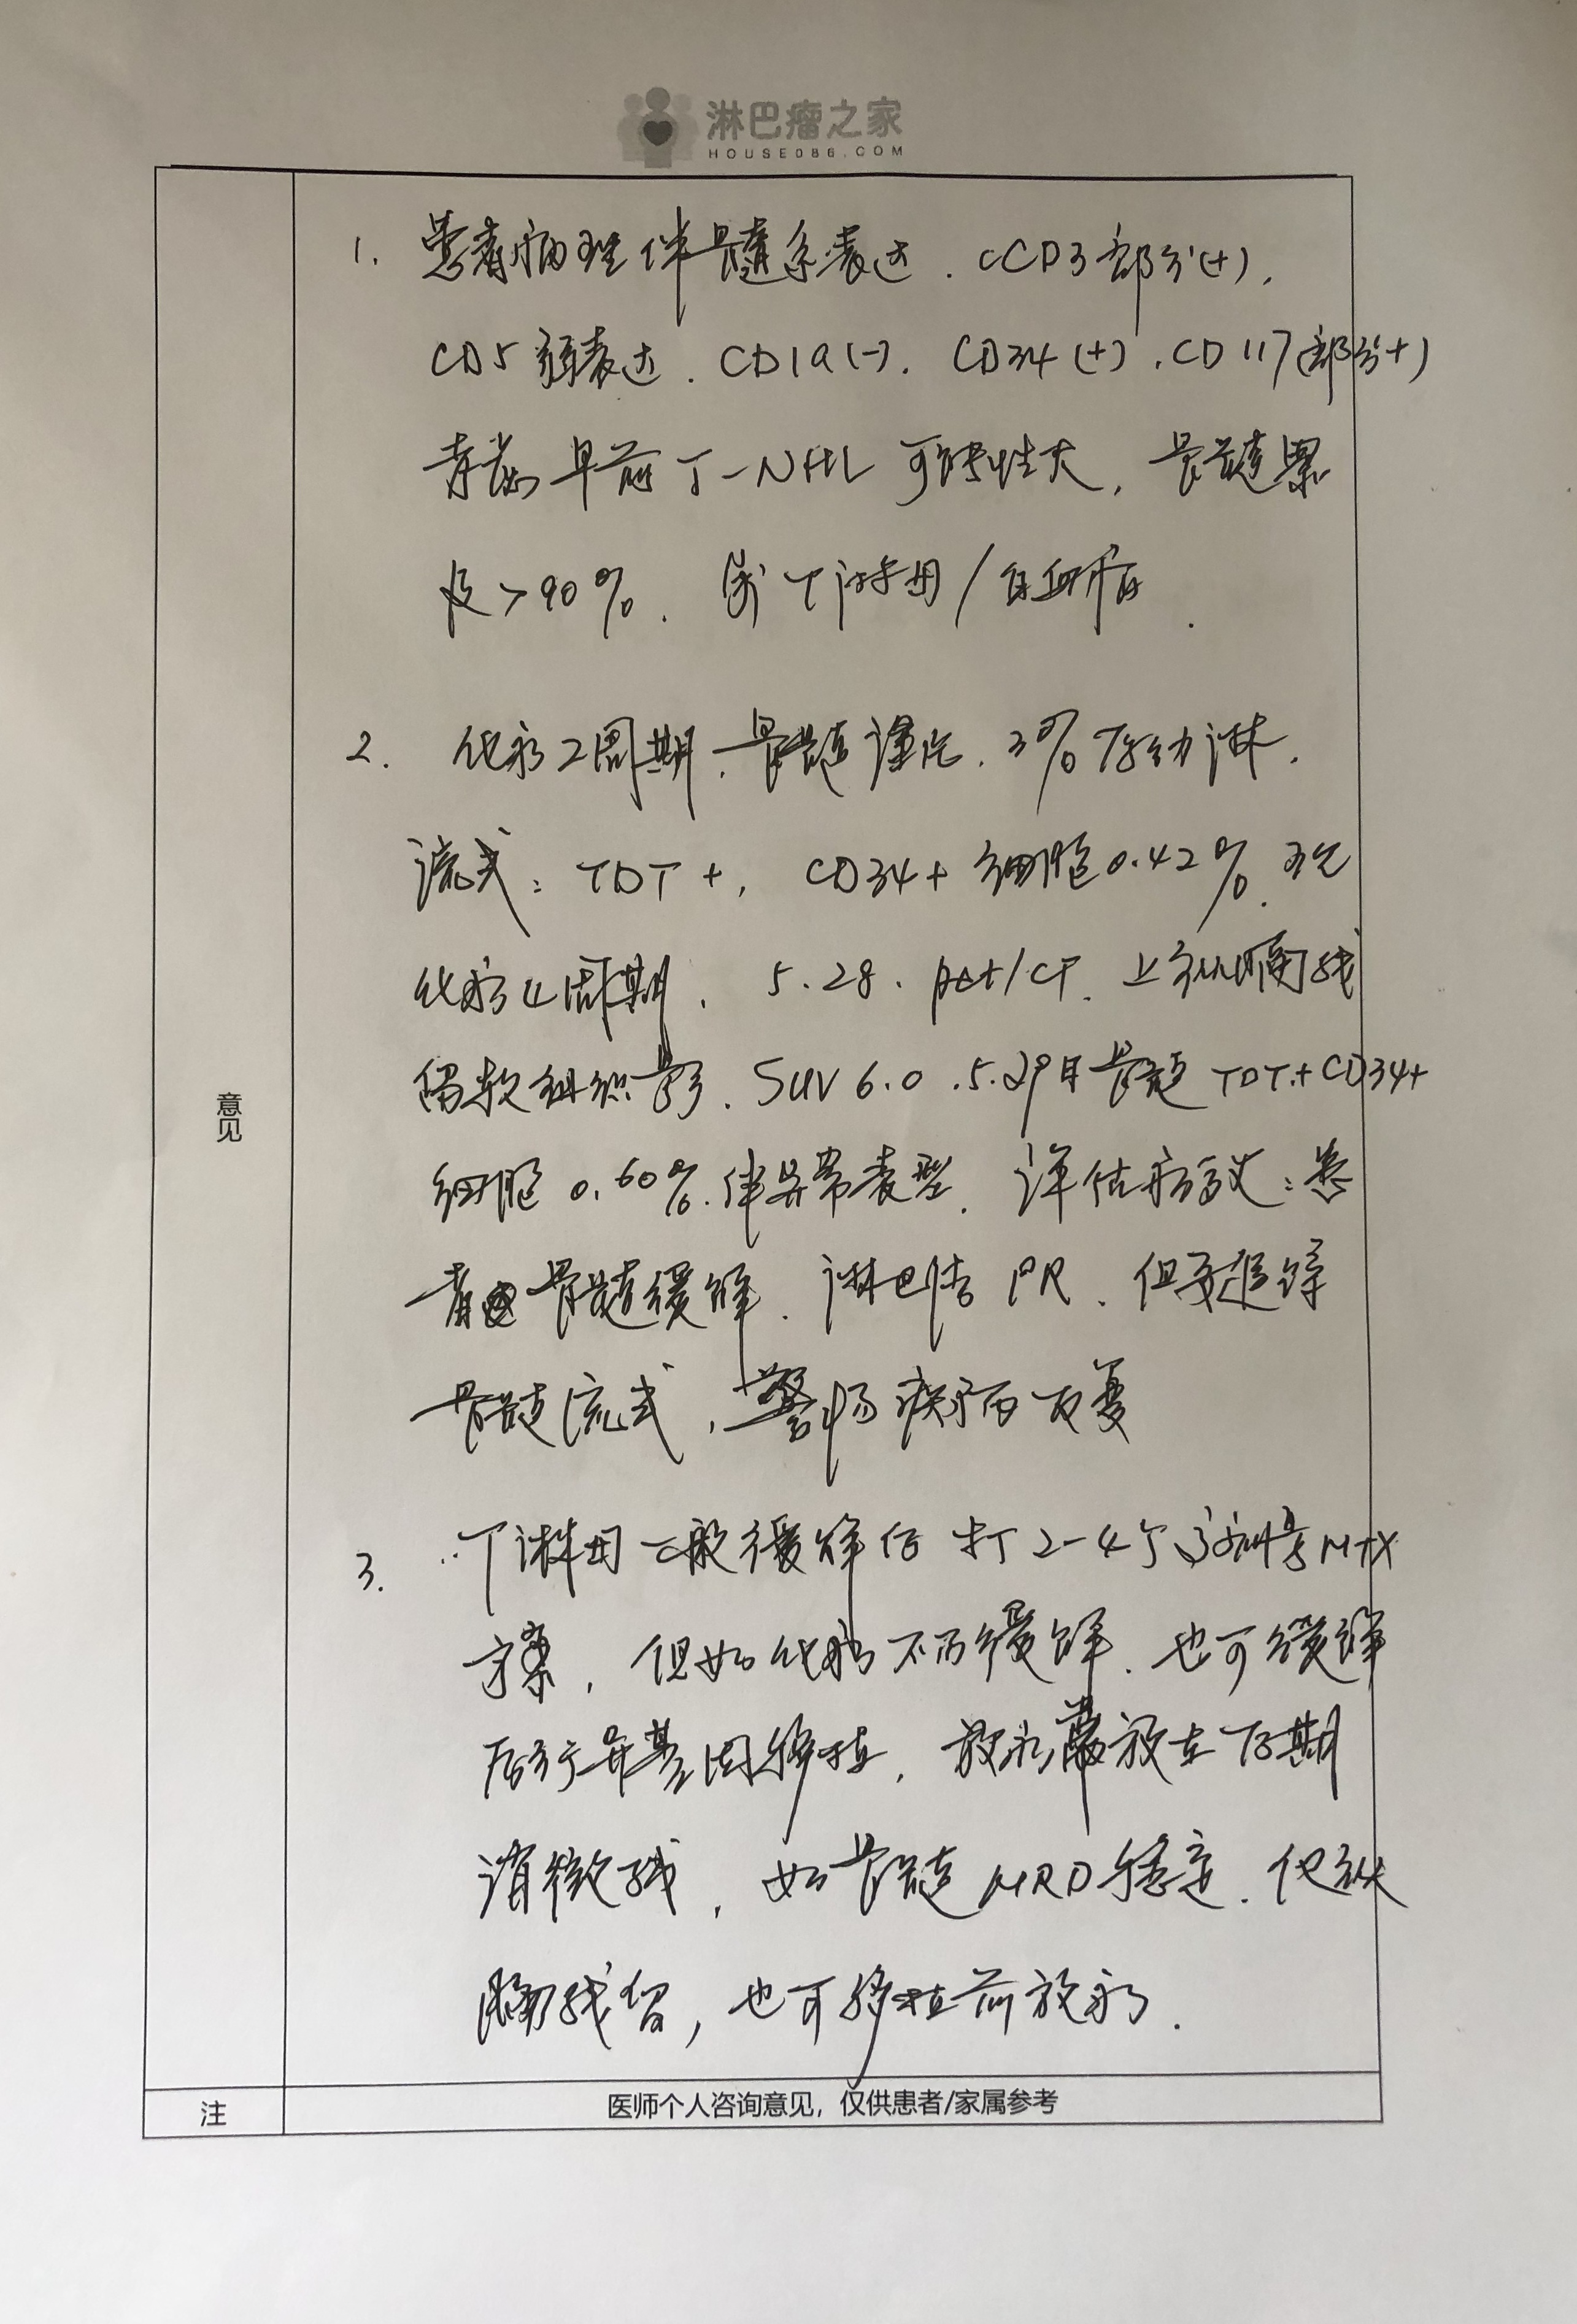 淋巴瘤之家
HOUSE086.COM
1. 患者病理伴髓系表达. cCD3部分(+),
CD5弱表达. CD1a(-). CD34(+). CD117(部分+)
考虑早前T-NHL可能性大, 骨髓累
及>90%. 属T淋母/白血病.
2. 化疗2周期, 骨髓 3%原幼淋.
流式: TDT+, CD34+细胞0.42%.
化疗4周期, 5.28. pet/CT. 上纵隔残
留软组织影. SUV 6.0. 5.29日骨髓TDT+CD34+
细胞0.60%. 伴异常表型. 评估疗效: 患
者骨髓缓解. 淋巴结PR. 但要追踪
骨髓流式, 警惕疾病反复
3. T淋母一般缓解后打2-4个大剂量MTX
方案, 但如化疗不缓解. 也可缓解
后行异基因移植, 放疗放在后期
清微残, 如骨髓MRD稳定. 但纵
膈残留, 也可移植前放疗.
意见
注
医师个人咨询意见，仅供患者/家属参考